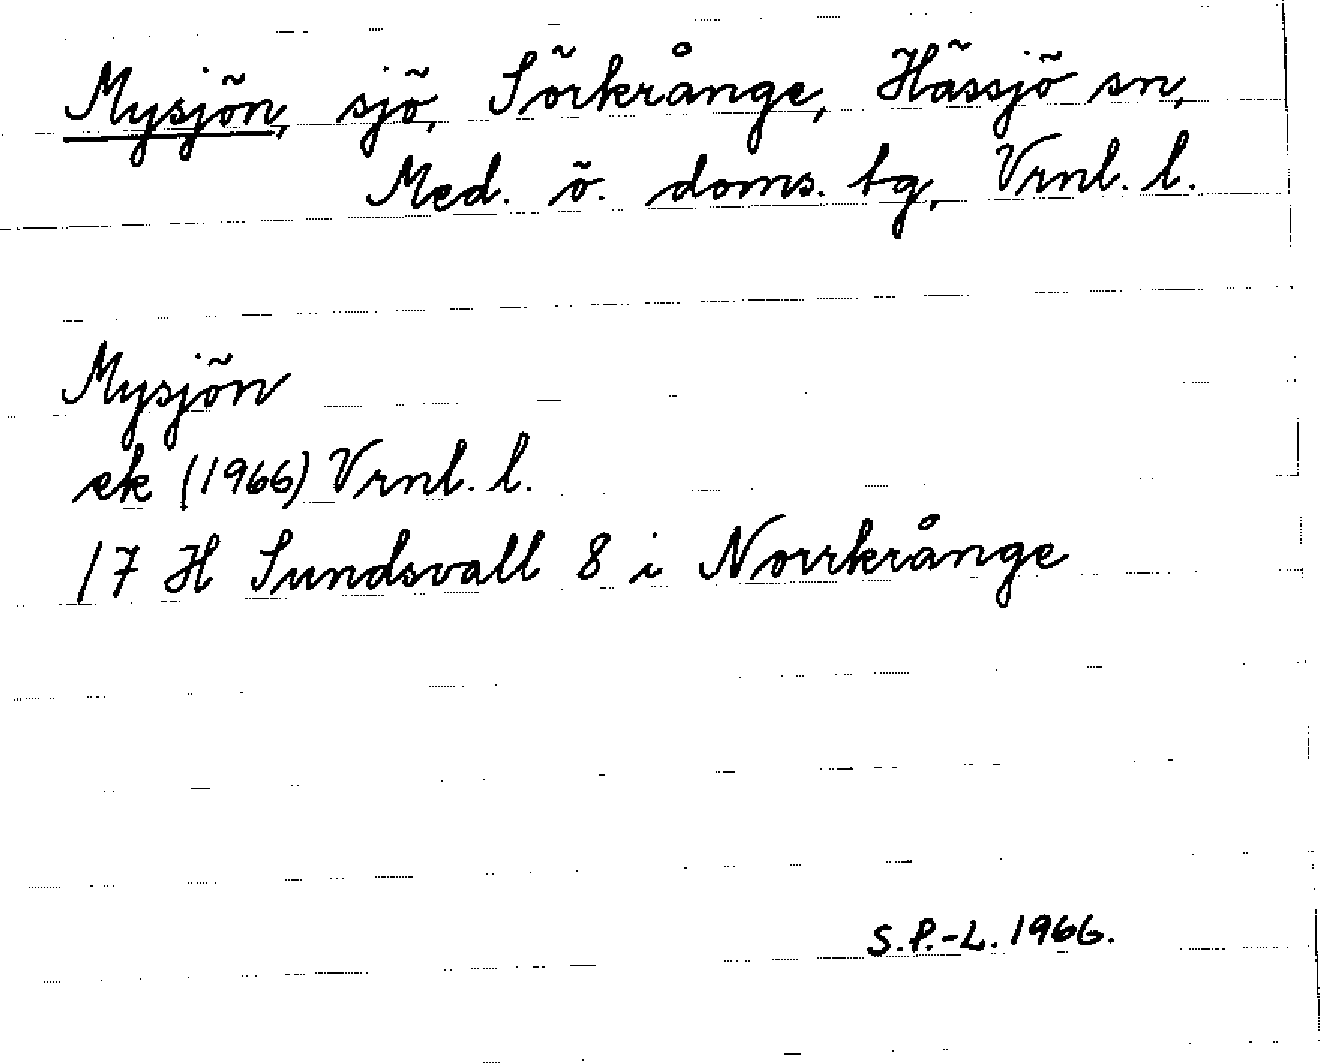 Mysjön, sjö, Sörkrånge, Hässjö sn,
Med. ö. doms. tg, Vrnl. l.
Mysjön
ek (1966) Vrnl. l.
17 H Sundsvall 8 i Norrkrånge
S.P.-L. 1966.